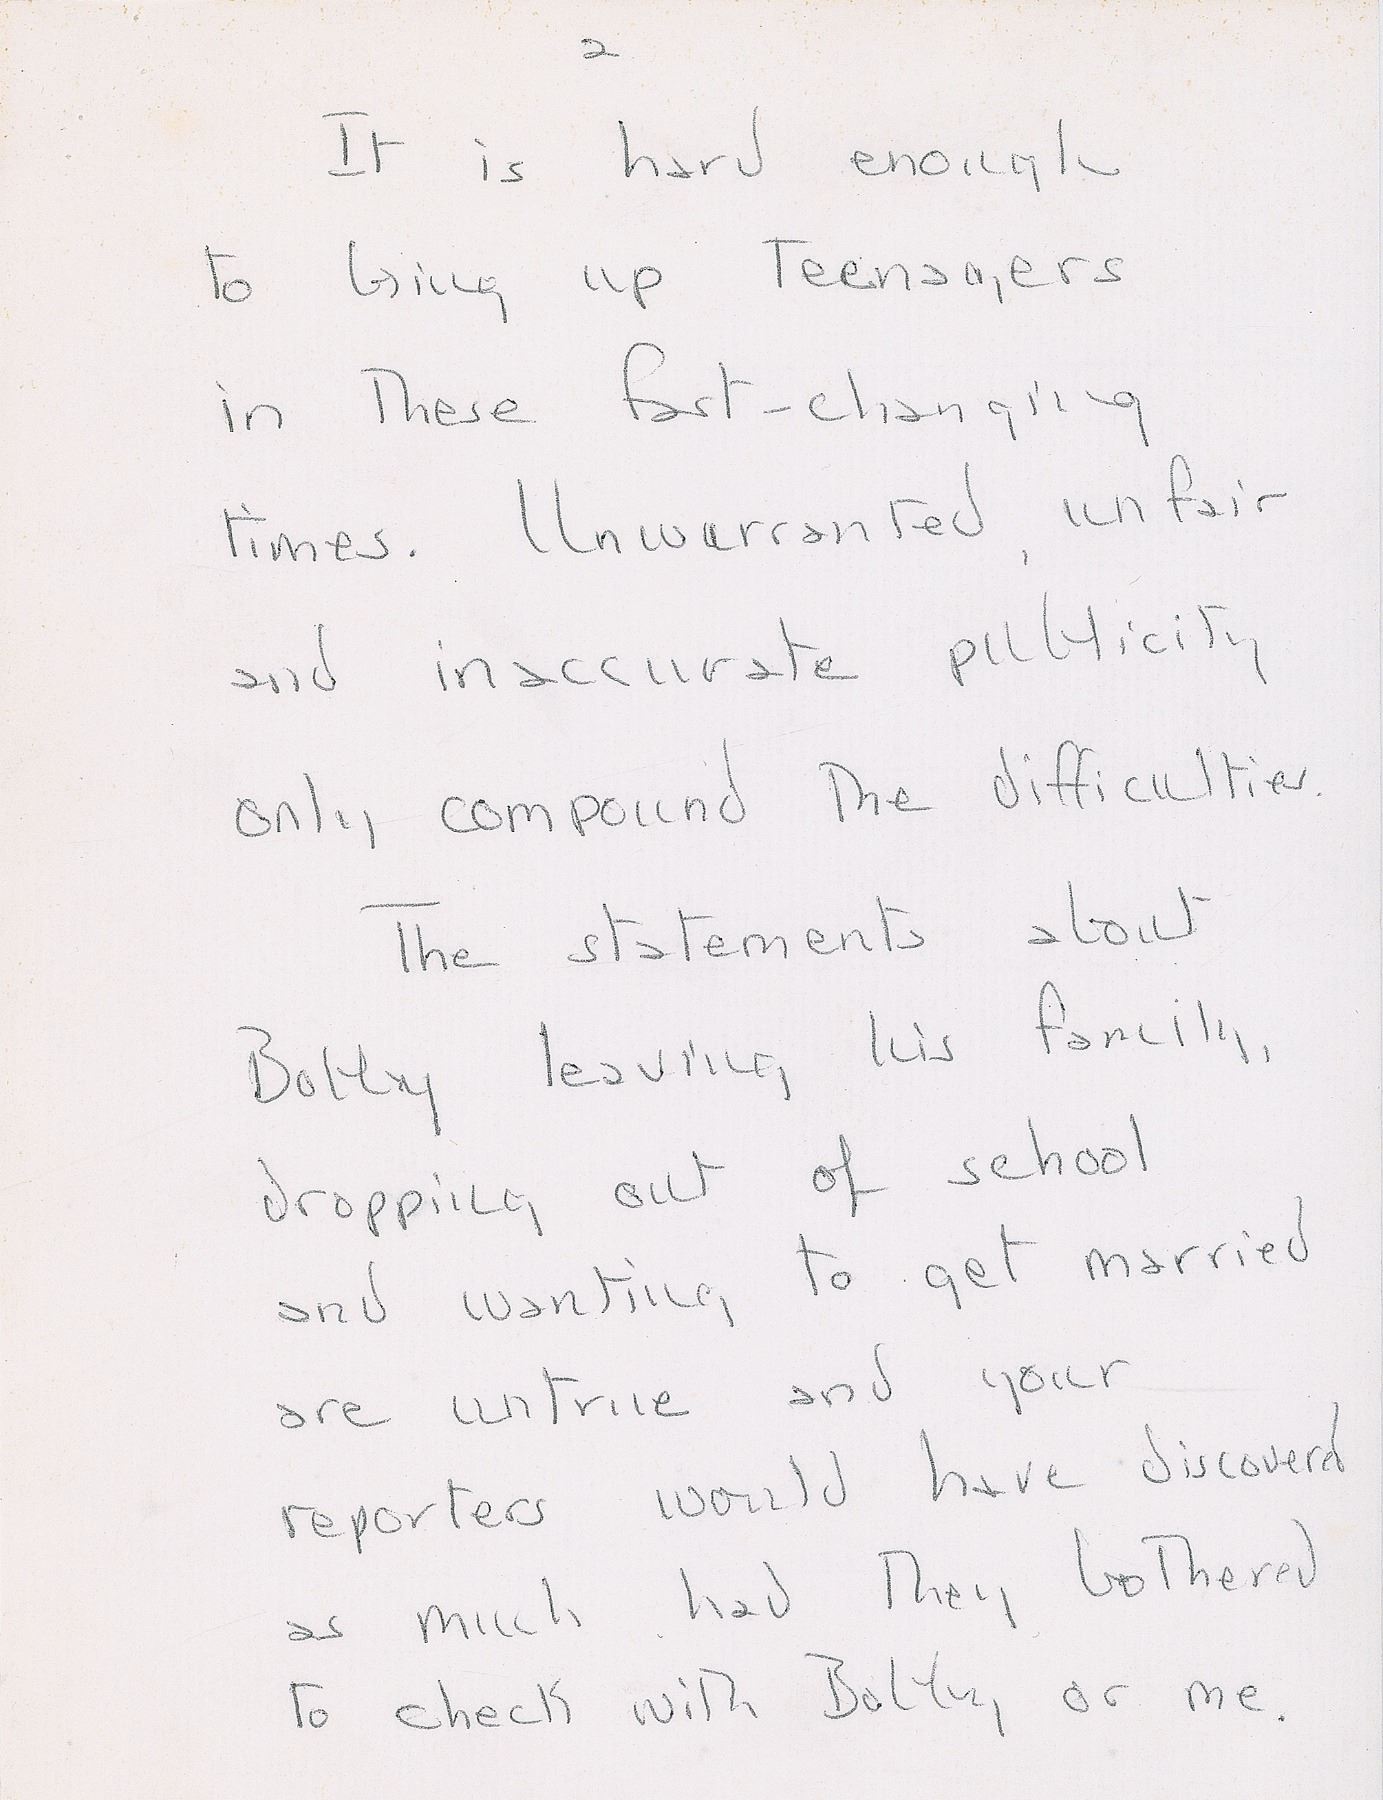 2
It is hard enough
to bring up Teenagers
in These fast-changing
times. Unwarranted, unfair
and inaccurate publicity
only compound The difficulties.
The statements about
Bobby leaving his family,
dropping out of school
and wanting to get married
are untrue and your
reporters would have discovered
as much had They bothered
to check with Bobby or me.